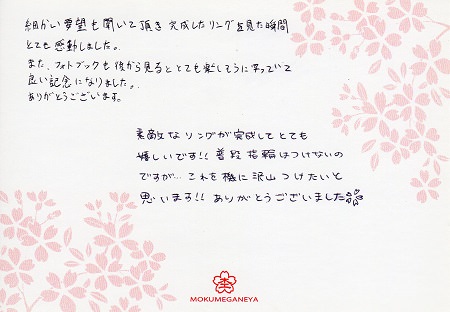 細かい要望も聞いて頂き完成したリングを見た瞬間
とても感動しました。
また、フォトブックも後から見るととても楽しそうに笑っていて
良い記念になりました。
ありがとうございます。
素敵なリングが完成してとても
嬉しいです!! 普段指輪はつけないの
ですが… これを機に沢山つけたいと
思います!! ありがとうございました
MOKUMEGANEYA